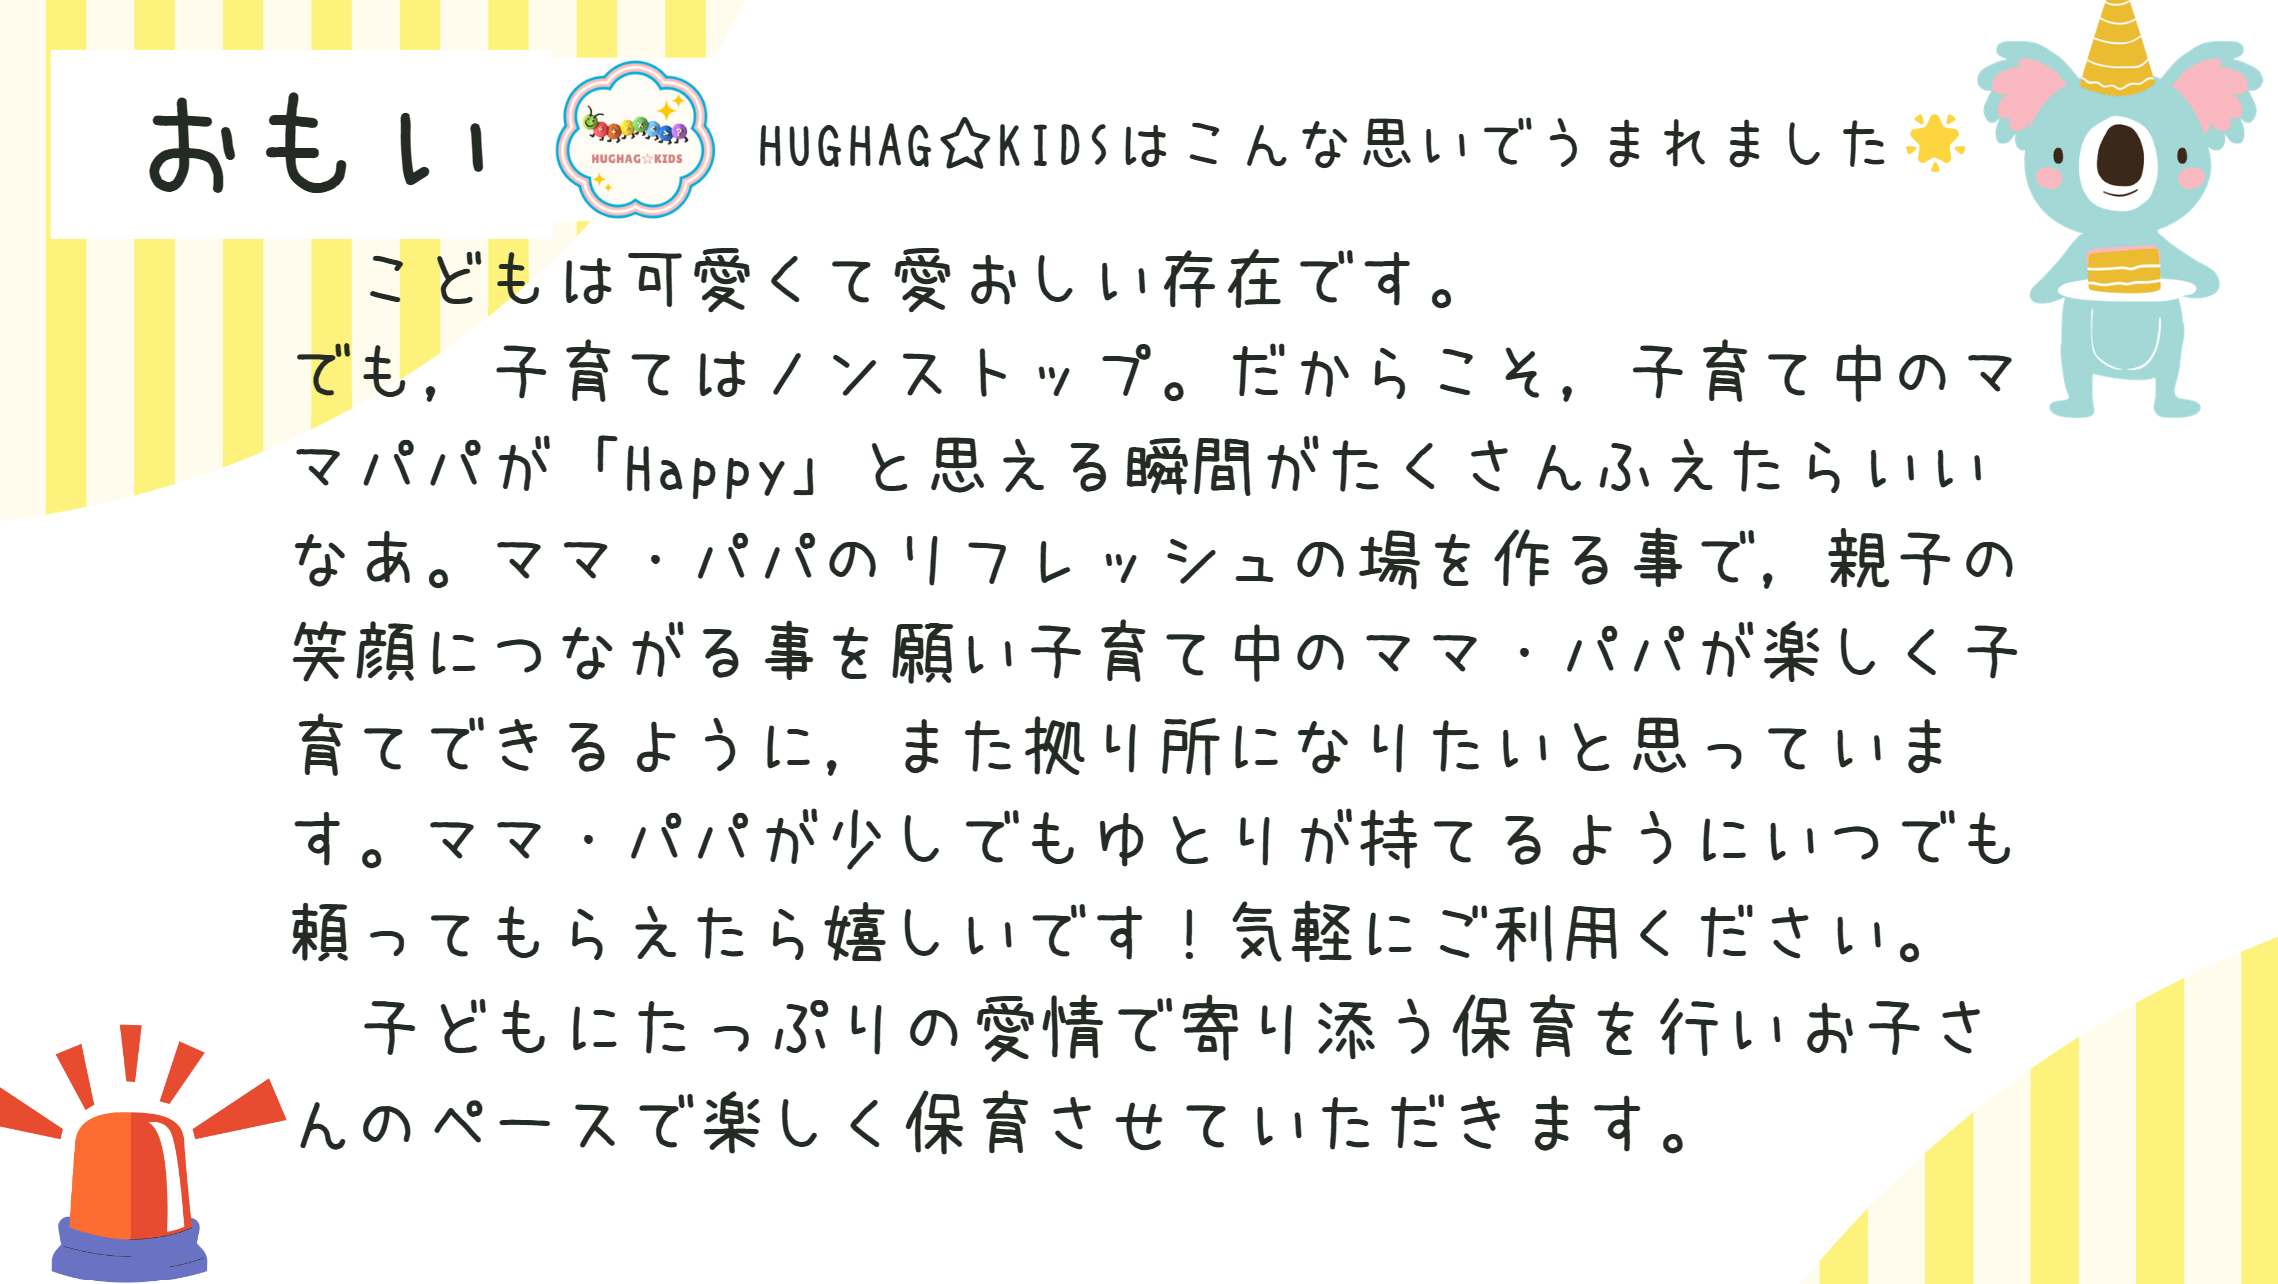 おもい
HUGHAG☆KIDS
HUGHAG☆KIDSはこんな思いでうまれました
こどもは可愛くて愛おしい存在です。
でも，子育てはノンストップ。だからこそ，子育て中のマ
マパパが「Happy」と思える瞬間がたくさんふえたらいい
なあ。ママ・パパのリフレッシュの場を作る事で，親子の
笑顔につながる事を願い子育て中のママ・パパが楽しく子
育てできるように，また拠り所になりたいと思っていま
す。ママ・パパが少しでもゆとりが持てるようにいつでも
頼ってもらえたら嬉しいです！気軽にご利用ください。
子どもにたっぷりの愛情で寄り添う保育を行いお子さ
んのペースで楽しく保育させていただきます。